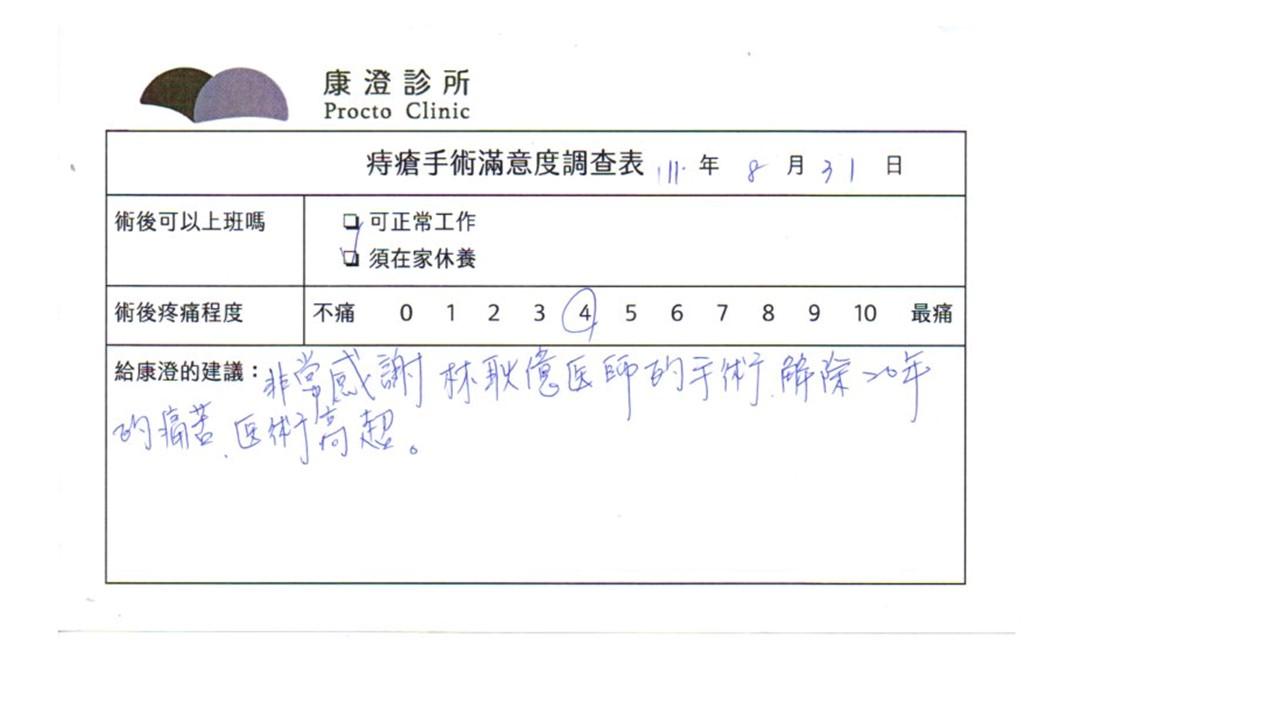 康澄診所
Procto Clinic
痔瘡手術滿意度調查表 111年 8月31日
術後可以上班嗎
可正常工作
須在家休養
術後疼痛程度 不痛 0 1 2 3 4 5 6 7 8 9 10 最痛
給康澄的建議：非常感謝 林耿億医師的手術.解除20年
的痛苦.医術高超。